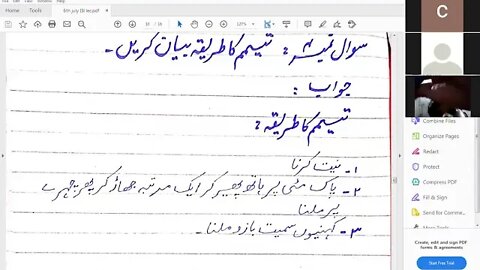 Home Tools
6th july DI lec.pdf
سوال نمبر : تیمم کا طریقہ بیان کریں۔
جواب :
تیمم کا طریقہ :
۱۔ نیت کرنا
۲۔ پاک مٹی پر ہاتھ پھیر کر ایک مرتبہ جھاڑ کر پھر چہرے
پر ملنا
۳۔ کہنیوں سمیت بازو ملنا۔
C
Combine Files
Organize Pages
Redact
Protect
Compress PDF
Fill & Sign
Send for Comme...
Create, edit and sign PDF
forms & agreements
Start Free Trial